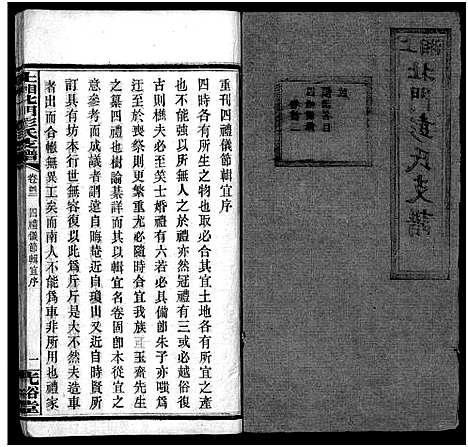 上湘北門彭氏支譜
卷首二
重刊四禮儀節輯宜序
四時各有所生之物也取各當其宜土地各有所宜之產
各有所以必用也禮亦然冠禮有三或者必越俗復
古以撫夫必至笑士婚禮有六若必具備卽朱子亦猶為
迂至於喪祭則更繁重尤必隨時合宜我族玉齋先生
之纂四禮也樹論綦詳而其以輯宜名卷固卽本從宜之
意參考而成議者謂自晦菴近自瓊山又近自時賢所
訂具有坊本行世無容復以此為斤斤是大不然夫造車
者出而合轍無異工矣而南人不能為車非所用也禮家
上湘北門彭氏支譜
卷首二
四禮儀節輯宜序
一
光裕堂